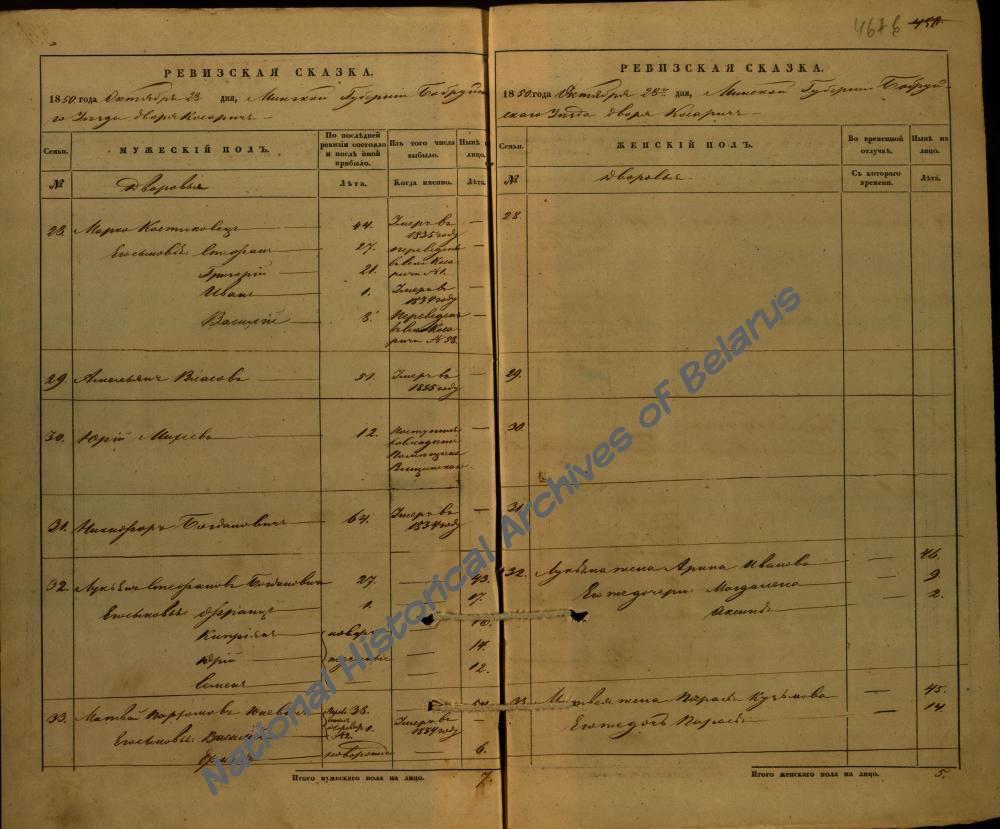 467 б 450.
РЕВИЗСКАЯ СКАЗКА.
1850 года Октября 28 дня, Минской Губернии Бобруйска
го Уезда двора Косарич
Семьи. МУЖЕСКІЙ ПОЛЪ. По последней ревизіи состояло и после оной прибыло. Изъ того числа выбыло. Ныне на лицо.
№ Дворовыя Лѣта. Когда именно. Лѣта.
28. Марко Костюковецъ 44. Умеръ въ 1835 году —
Его сыновья: Стефанъ 27. переведенъ —
Григорій 21. въ село Косаричи №1. —
Иванъ 1. Умеръ въ 1834 году —
Василій 3. Переведенъ въ село Косаричи №58. —
29. Амельянъ Власовъ 51. Умеръ въ 1835 году —
30. Юрій Михеевъ 12. Поступилъ Помещика —
31. Никифоръ Богдановичъ 64. Умеръ въ 1834 году —
32. Лукьянъ Стефановъ Богдановичъ 27. — 43.
Его сыновья: Францъ 1. — 17.
Кипріянъ новоро — 16.
Юрій — 14.
Семенъ — 12.
33. Матвей 38.
Его сыновья: Василій 1. №2. Умеръ въ 1834 году —
новорожд 6.
Итого мужескаго пола на лицо. 7.
РЕВИЗСКАЯ СКАЗКА.
1850. года Октября 28го дня, Минской Губерніи Бобруй-
скаго Уезда двора Косаричъ
Семьи. ЖЕНСКІЙ ПОЛЪ. Во временной отлучкѣ. Нынѣ на лицо.
№ Дворовыя Съ котораго времени. Лѣта.
28.
29.
30.
31.
32. Лукьяна жена Арина Иванова — 46.
Его же дочери: Магдалена — 9.
Аксинья — 2.
33. Матвея жена Парася Кузьмова — 45.
Его же дочь Парася — 14.
Итого женскаго пола на лицо. 5.
National Historical Archives of Belarus